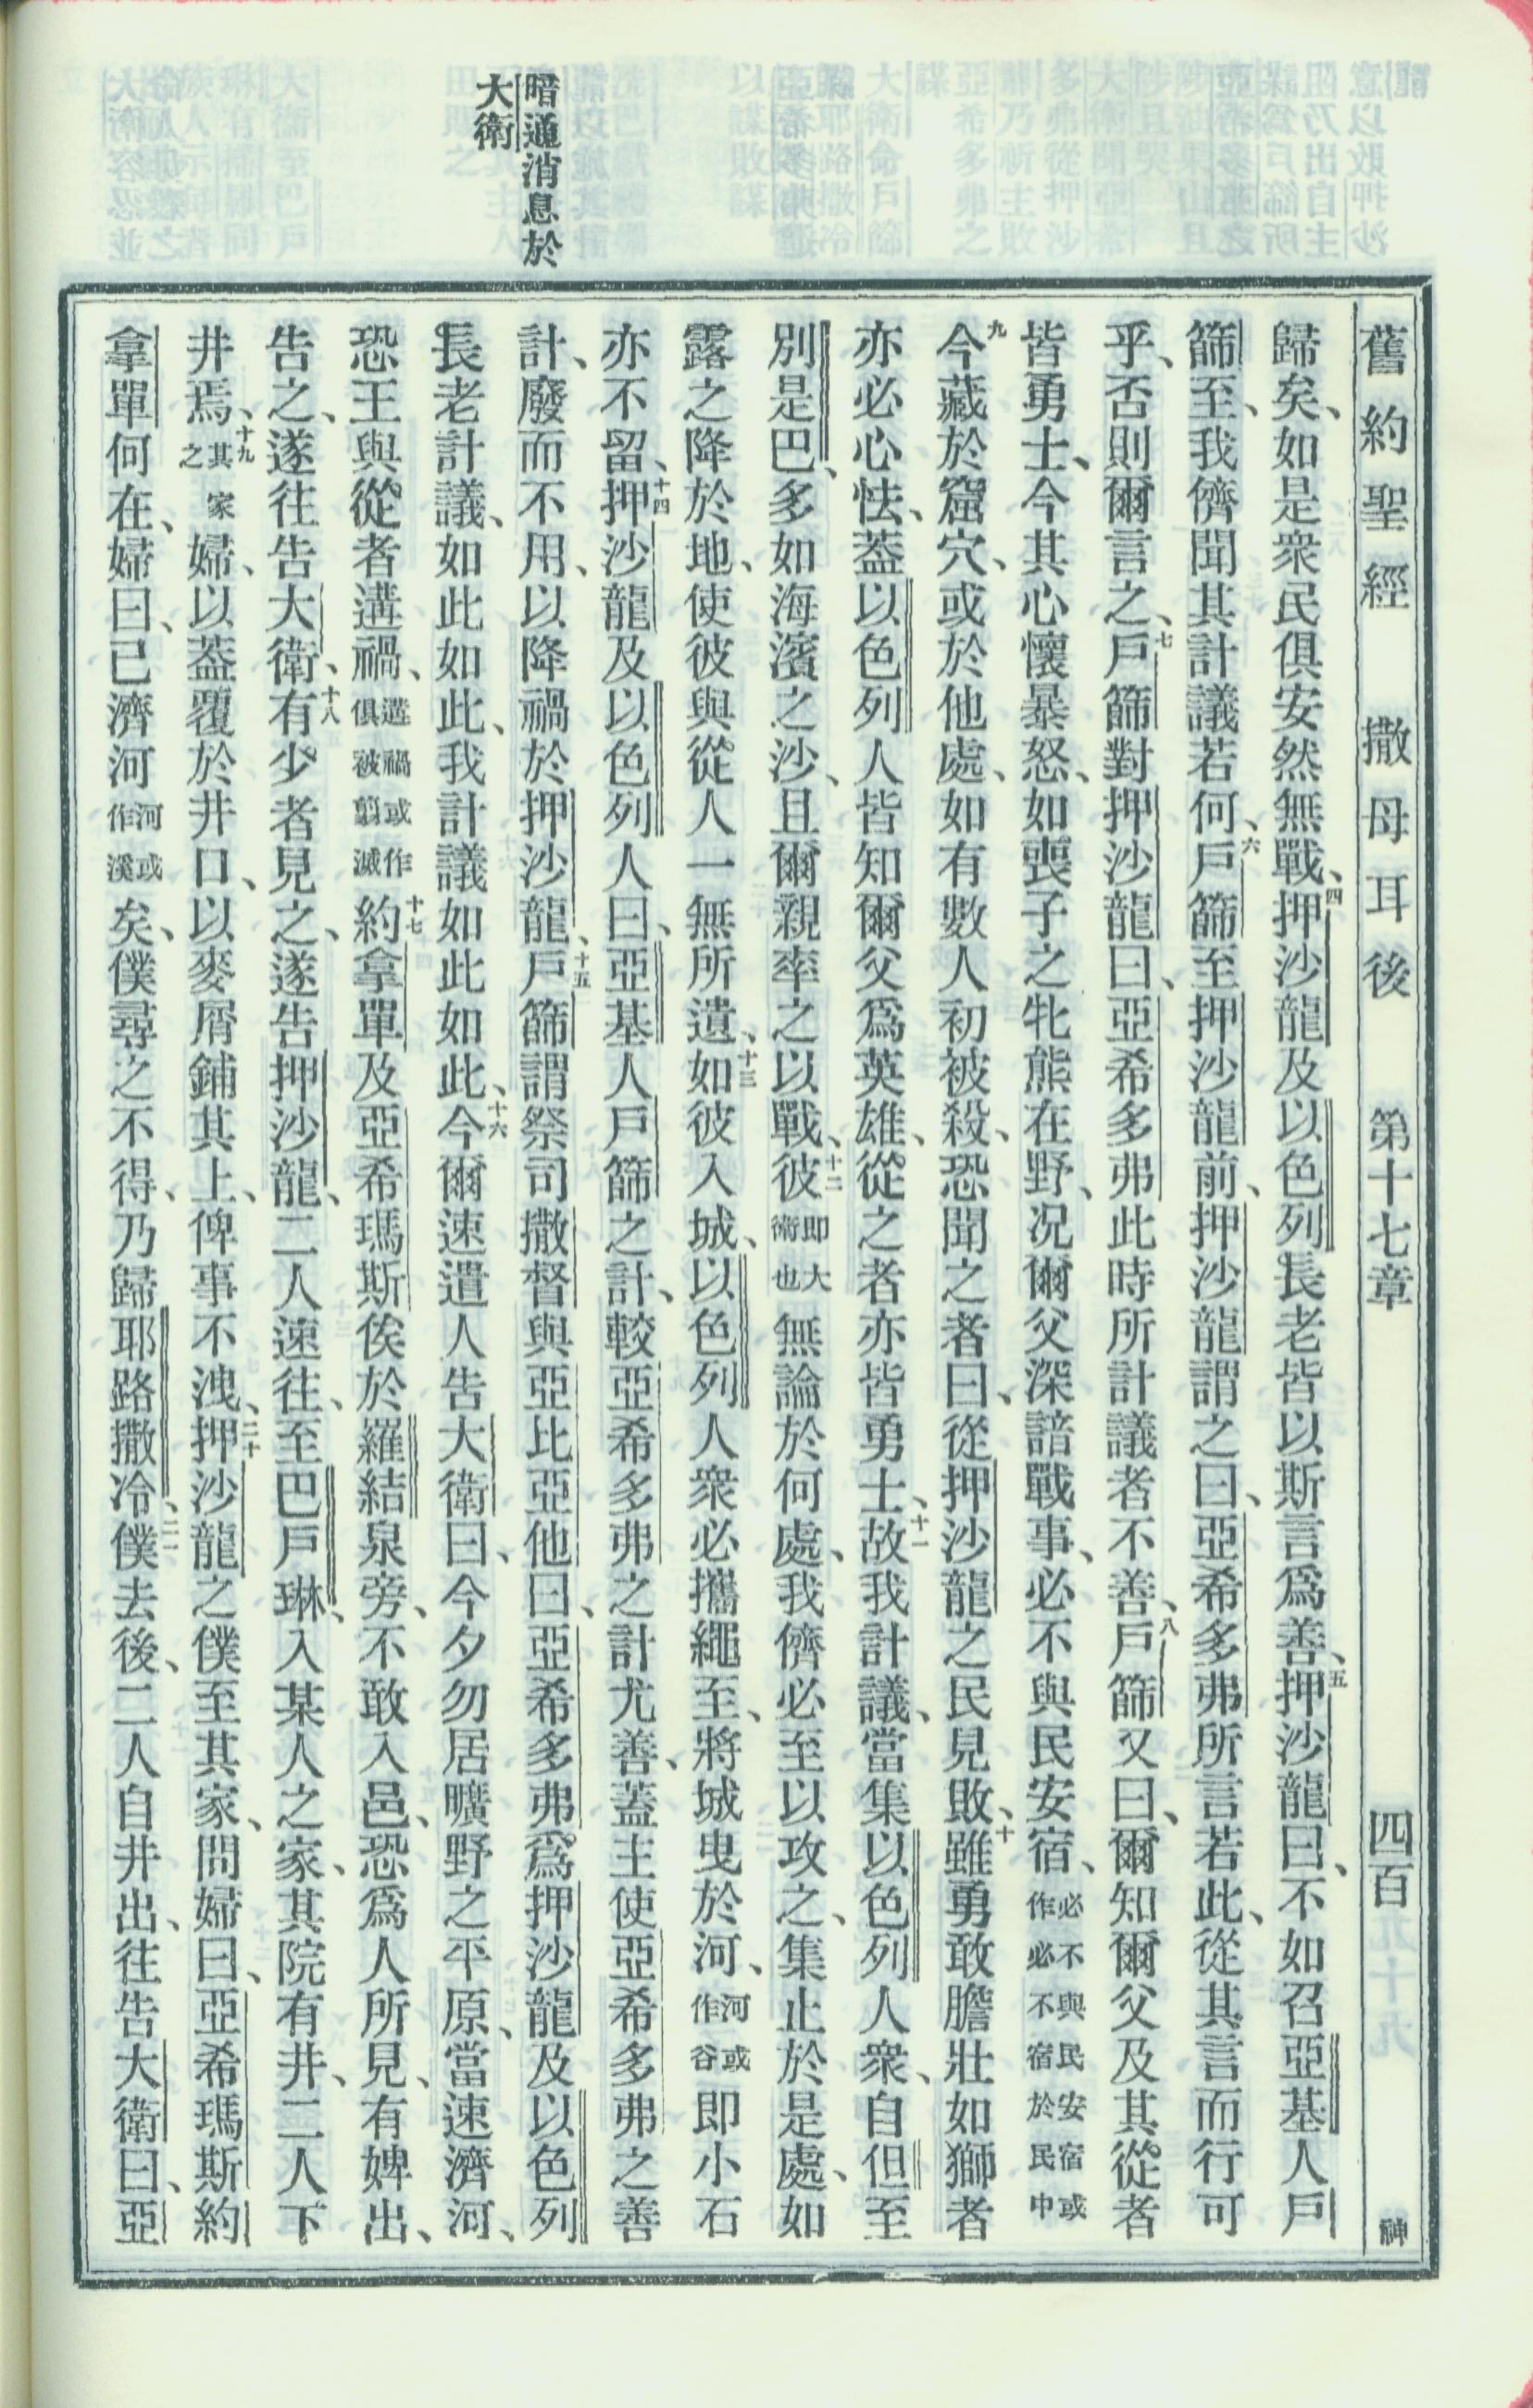 舊約聖經　撒母耳後　第十七章　四百　神
暗通消息於
大衛
歸矣、如是衆民俱安然無戰、四押沙龍及以色列長老皆以斯言爲善、五押沙龍曰、不如召亞基人戶
篩至、我儕聞其計議若何、六戶篩至押沙龍前、押沙龍謂之曰、亞希多弗所言若此、從其言而行可
乎、否則爾言之、七戶篩對押沙龍曰、亞希多弗此時所計議者不善、八戶篩又曰、爾知爾父及其從者
皆勇士、今其心懷暴怒、如喪子之牝熊在野、况爾父深諳戰事、必不與民安宿、必不與民安宿或作必不宿於民中
九今藏於窟穴、或於他處、如有數人初被殺、恐聞之者曰、從押沙龍之民見敗、十雖勇敢膽壯如獅者
亦必心怯、蓋以色列人皆知爾父爲英雄、從之者亦皆勇士、十一故我計議、當集以色列人衆、自但至
別是巴、多如海濱之沙、且爾親率之以戰、十二彼卽大衛也無論於何處、我儕必至以攻之、集止於是處、如
露之降於地、使彼與從人一無所遺、十三如彼入城、以色列人衆必攜繩至、將城曳於河、河或作谷卽小石
亦不留、十四押沙龍及以色列人曰、亞基人戶篩之計、較亞希多弗之計尤善、蓋主使亞希多弗之善
計、廢而不用、以降禍於押沙龍、十五戶篩謂祭司撒督與亞比亞他曰、亞希多弗爲押沙龍及以色列
長老計議、如此如此、我計議如此如此、十六今爾速遣人告大衛曰、今夕勿居曠野之平原、當速濟河、
恐王與從者遘禍、遘禍或作俱被翦滅十七約拿單及亞希瑪斯俟於羅結泉旁、不敢入邑、恐爲人所見、有婢出、
告之、遂往告大衛、十八有少者見之、遂告押沙龍、二人速往、至巴戶琳、入某人之家、其院有井、二人下
井焉、十九其家之婦、以蓋覆於井口、以麥屑鋪其上、俾事不洩、二十押沙龍之僕至其家、問婦曰、亞希瑪斯約
拿單何在、婦曰、已濟河河或作溪矣、僕尋之不得、乃歸耶路撒冷、二一僕去後、二人自井出、往告大衛曰、亞